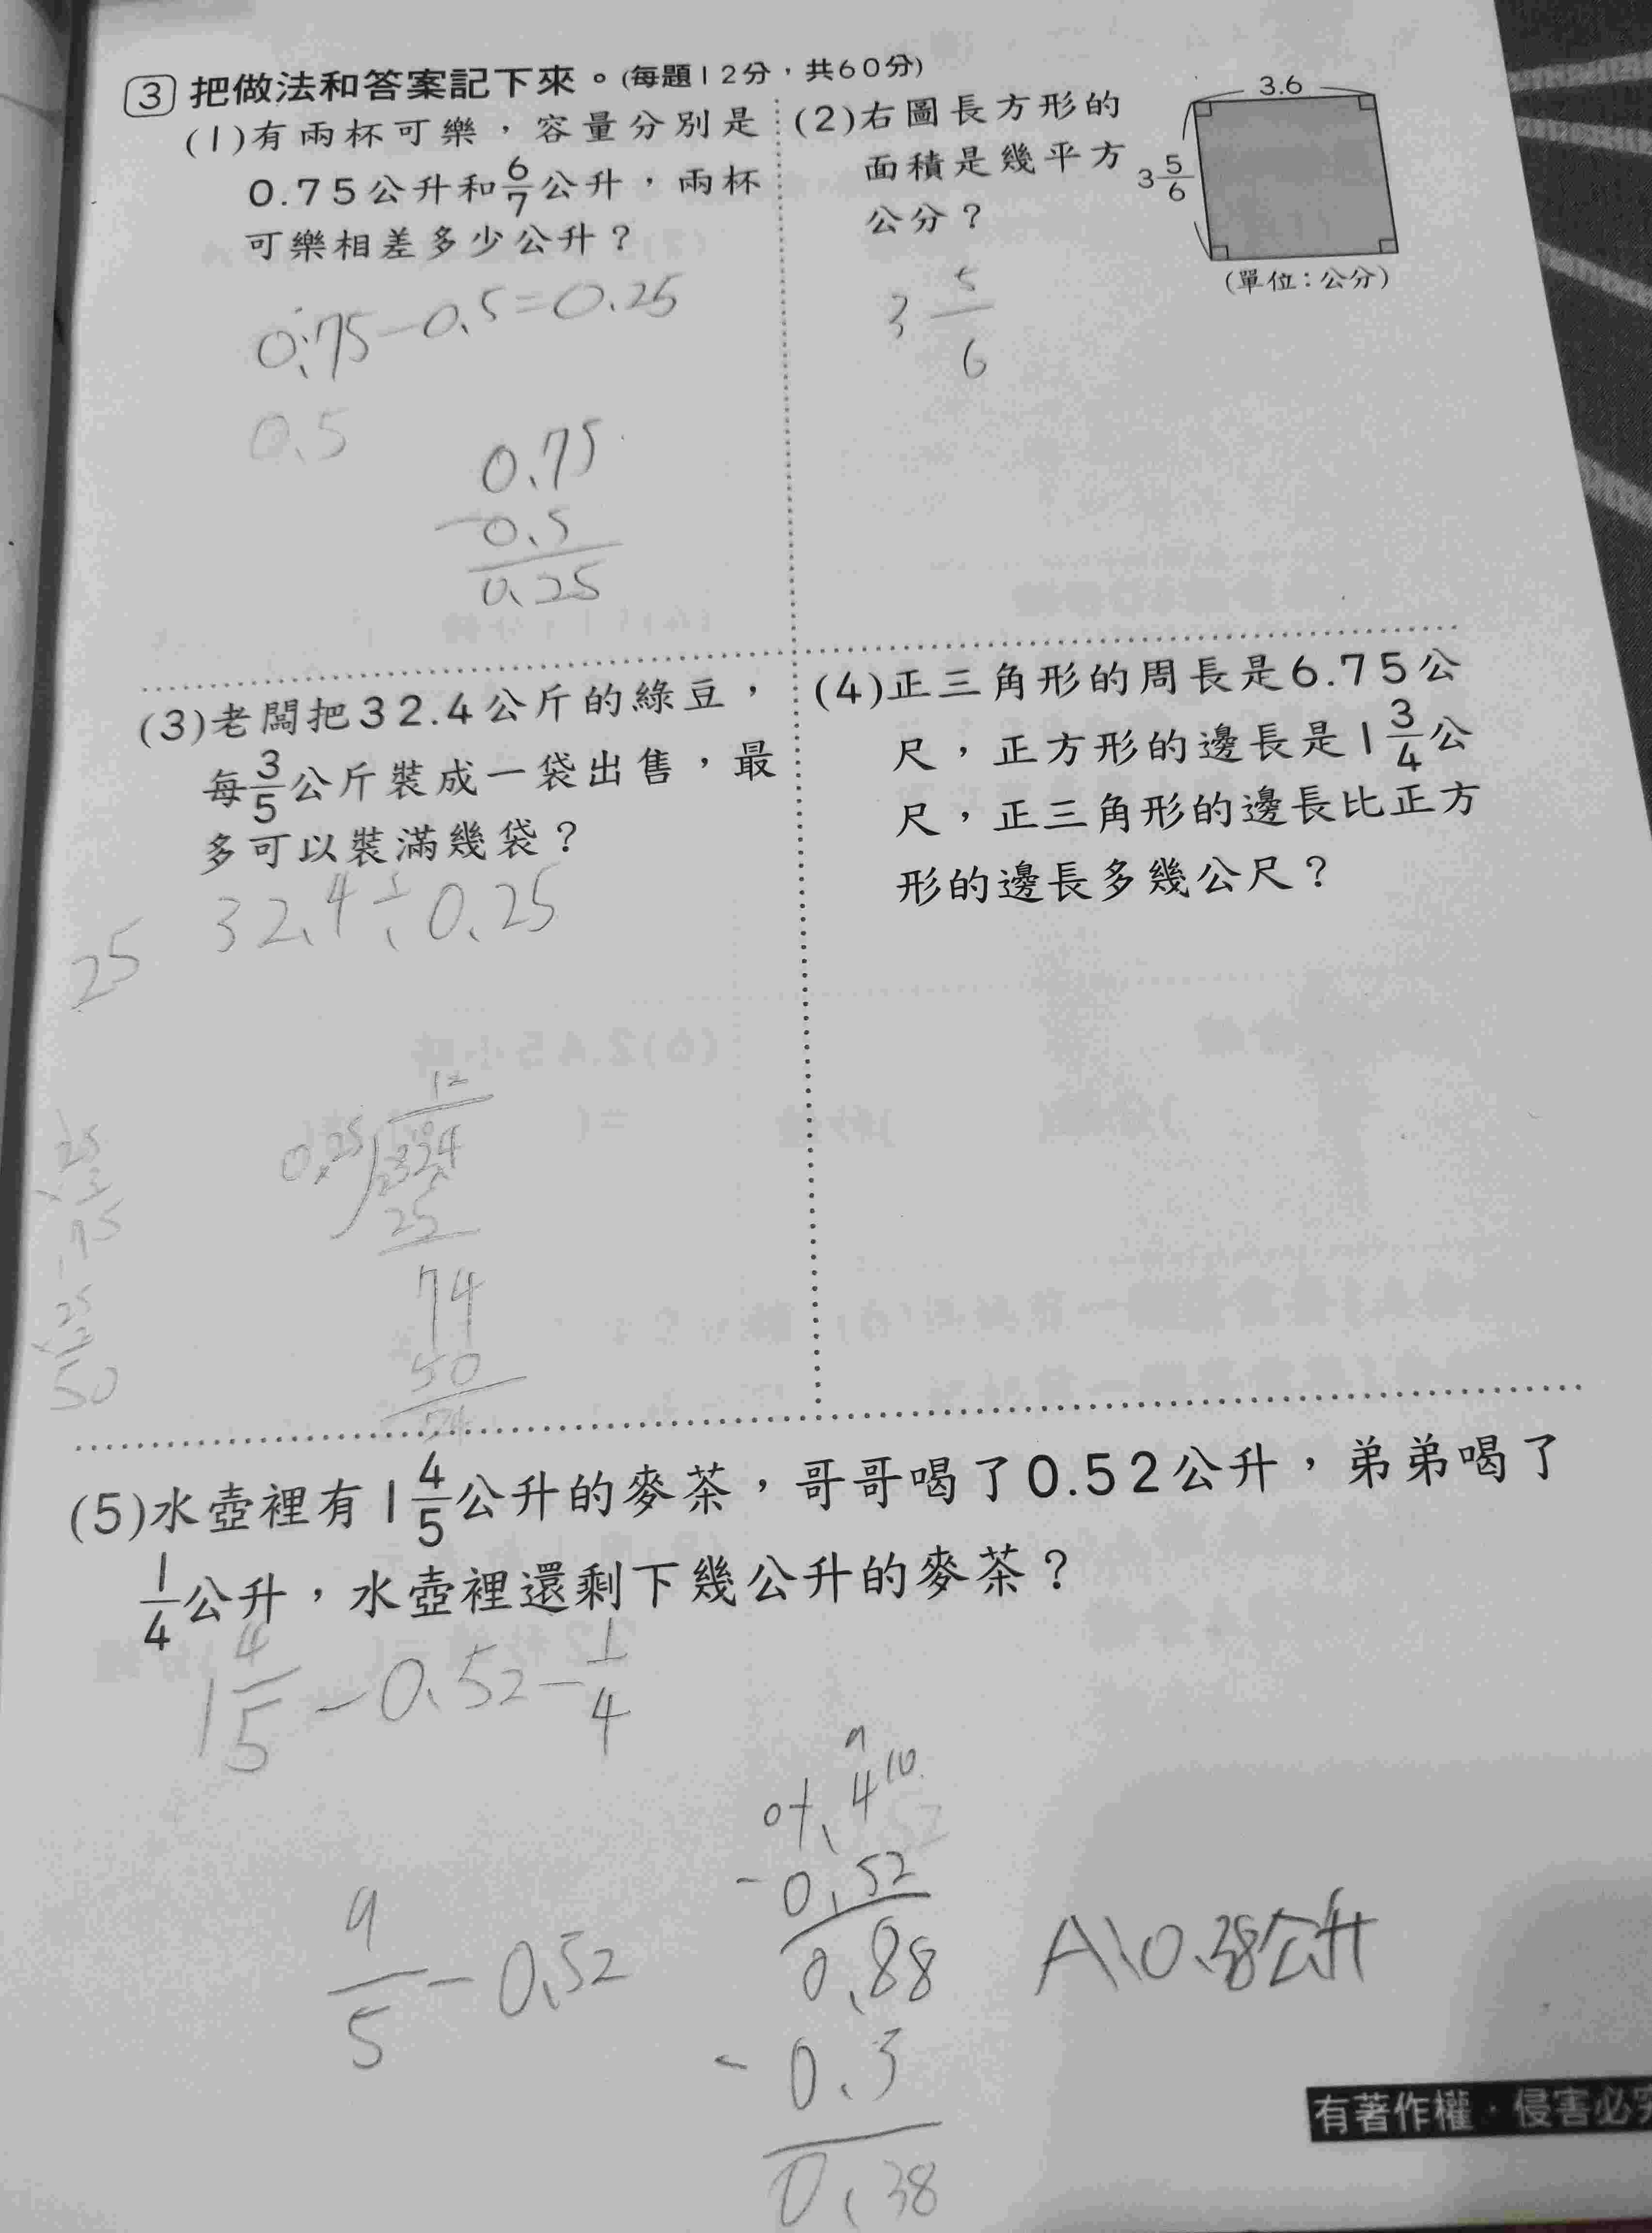 3 把做法和答案記下來。(每題12分,共60分)
(1)有兩杯可樂,容量分別是
0.75公升和6/7公升,兩杯
可樂相差多少公升?
0.75-0.5=0.25
0.5
0.75
-0.5
0.25
(2)右圖長方形的
面積是幾平方
公分?
3.6
3 5/6
(單位:公分)
3 5/6
(3)老闆把32.4公斤的綠豆,
每3/5公斤裝成一袋出售,最
多可以裝滿幾袋?
32.4÷0.25
25
12
0.25 324
25
74
50
25
×3
75
25
×2
50
(4)正三角形的周長是6.75公
尺,正方形的邊長是1 3/4公
尺,正三角形的邊長比正方
形的邊長多幾公尺?
(5)水壺裡有1 4/5公升的麥茶,哥哥喝了0.52公升,弟弟喝了
1/4公升,水壺裡還剩下幾公升的麥茶?
1 4/5-0.52-1/4
9/5-0.52
9
0 1.4 10
-0.52
0.88
-0.3
0.38
A\0.38公升
有著作權·侵害必究